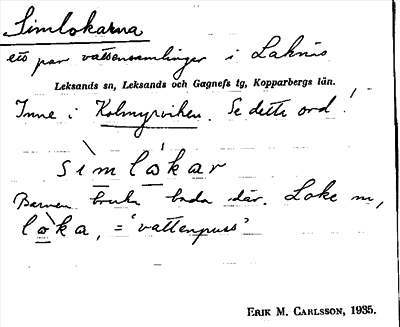 Simlokarna
ett par vattensamlingar i Laknäs
Leksands sn, Leksands och Gagnefs tg, Kopparbergs län.
Inne i Kolmyrviken. Se detta ord!
sìmlòkar
Barnen bruka bada där. Loke m,
lòka, = 'vattenpuss'
ERIK M. CARLSSON, 1935.